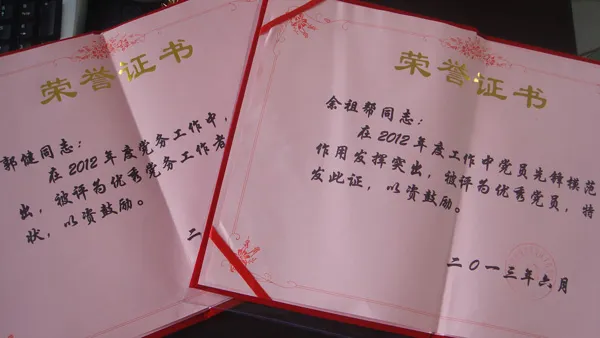 荣誉证书
郭健同志：
在2012年度党务工作中，
出，被评为优秀党务工作者
状，以资鼓励。
二
荣誉证书
余祖帮同志：
在2012年度工作中党员先锋模范
作用发挥突出，被评为优秀党员，特
发此证，以资鼓励。
二〇一三年六月